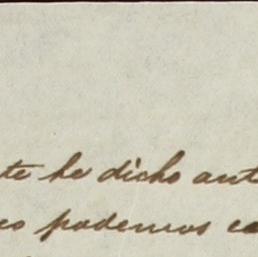 te he dicho ant
co podemos co